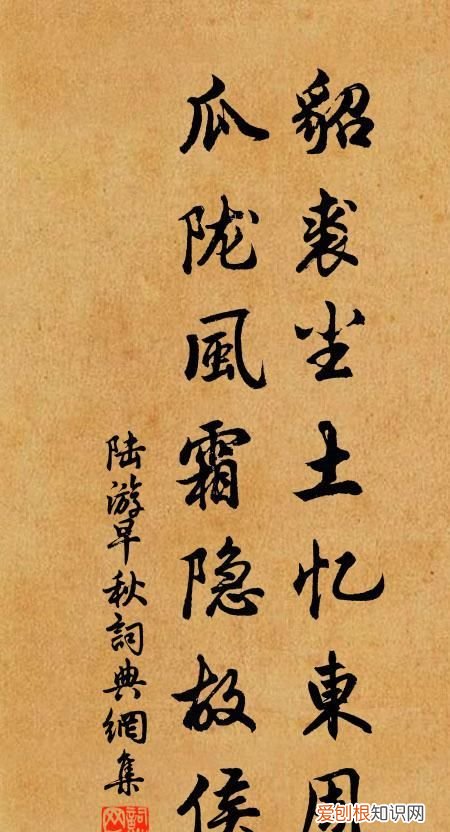 貂裘尘土忆東周
瓜陇風霜隐故侯
陆游早秋詞典網集
爱刨根知识网